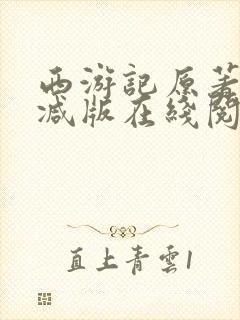 西游記原著
減版在綫閱
直上青雲1